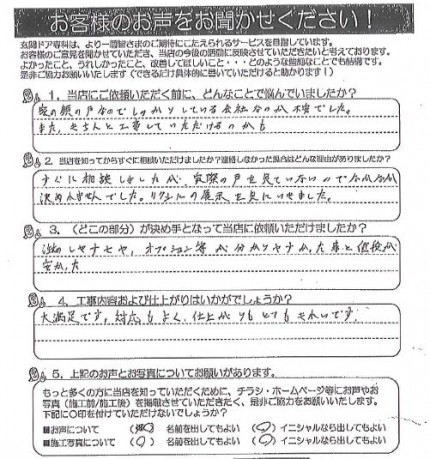 お客様のお声をお聞かせください！
玄関ドア専科は、より一層皆さまのご期待にこたえられるサービスを目指しています。
お客様のご意見を聞かせていただき、当店の今後の活動に反映させていただきたいと考えております。
よかったこと、うれしかったこと、改善してほしいこと・・・どのような些細なことでも結構です。
是非ご協力お願いいたします（できるだけ具体的に書いていただけると助かります！）
1. 当店にご依頼いただく前に、どんなことで悩んでいましたか？
家の顔の戸なのでしっかりしている会社なのか不安でした。
また、きちんと工事していただけるのかも
2. 当店を知ってからすぐに相談いただけましたか？連絡しなかった場合はどんな理由がありましたか？
すぐに相談しましたが、実際の戸を見ていないのでなかなか
決められませんでした。リクシルの展示を見にいきました。
3. （どこの部分）が決め手となって当店に依頼いただけましたか？
しやすさや、オプション等が分かりやすかった事と値段が
安かった
4. 工事内容および仕上がりはいかがでしょうか？
大満足です。対応もよく、仕上がりもとてもきれいです。
5. 上記のお声とお写真についてお願いがあります。
もっと多くの方に当店を知っていただくために、チラシ・ホームページ等にお声やお
写真（施工前/施工後）を掲載させていただきたく、是非ご協力をお願いいたします。
下記に○印を付けていただけないでしょうか？
■お声について （ ） 名前を出してもよい （○） イニシャルなら出してもよい
■施工写真について （○） 名前を出してもよい （○） イニシャルなら出してもよい